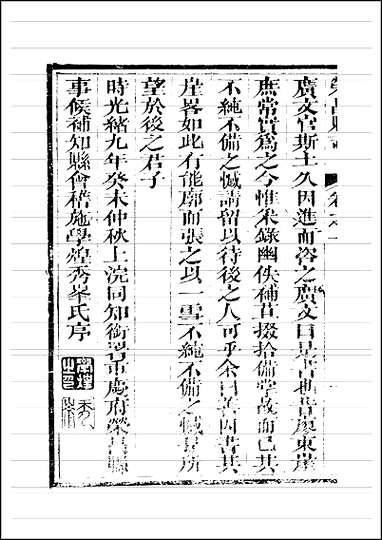 廣文官斯土久因進而咨之廣文曰是書也昔廖東崖
廡常嘗為之今惟采錄幽佚補苴掇拾備掌故而已其
不純不備之憾請留以待後之人可乎余曰善因書其
崖畧如此有能廓而張之以一雪不純不備之憾是所
望於後之君子
時光緒九年癸未仲秋上浣同知銜署重慶府榮昌縣
事候補知縣會稽施學煌秀峯氏序